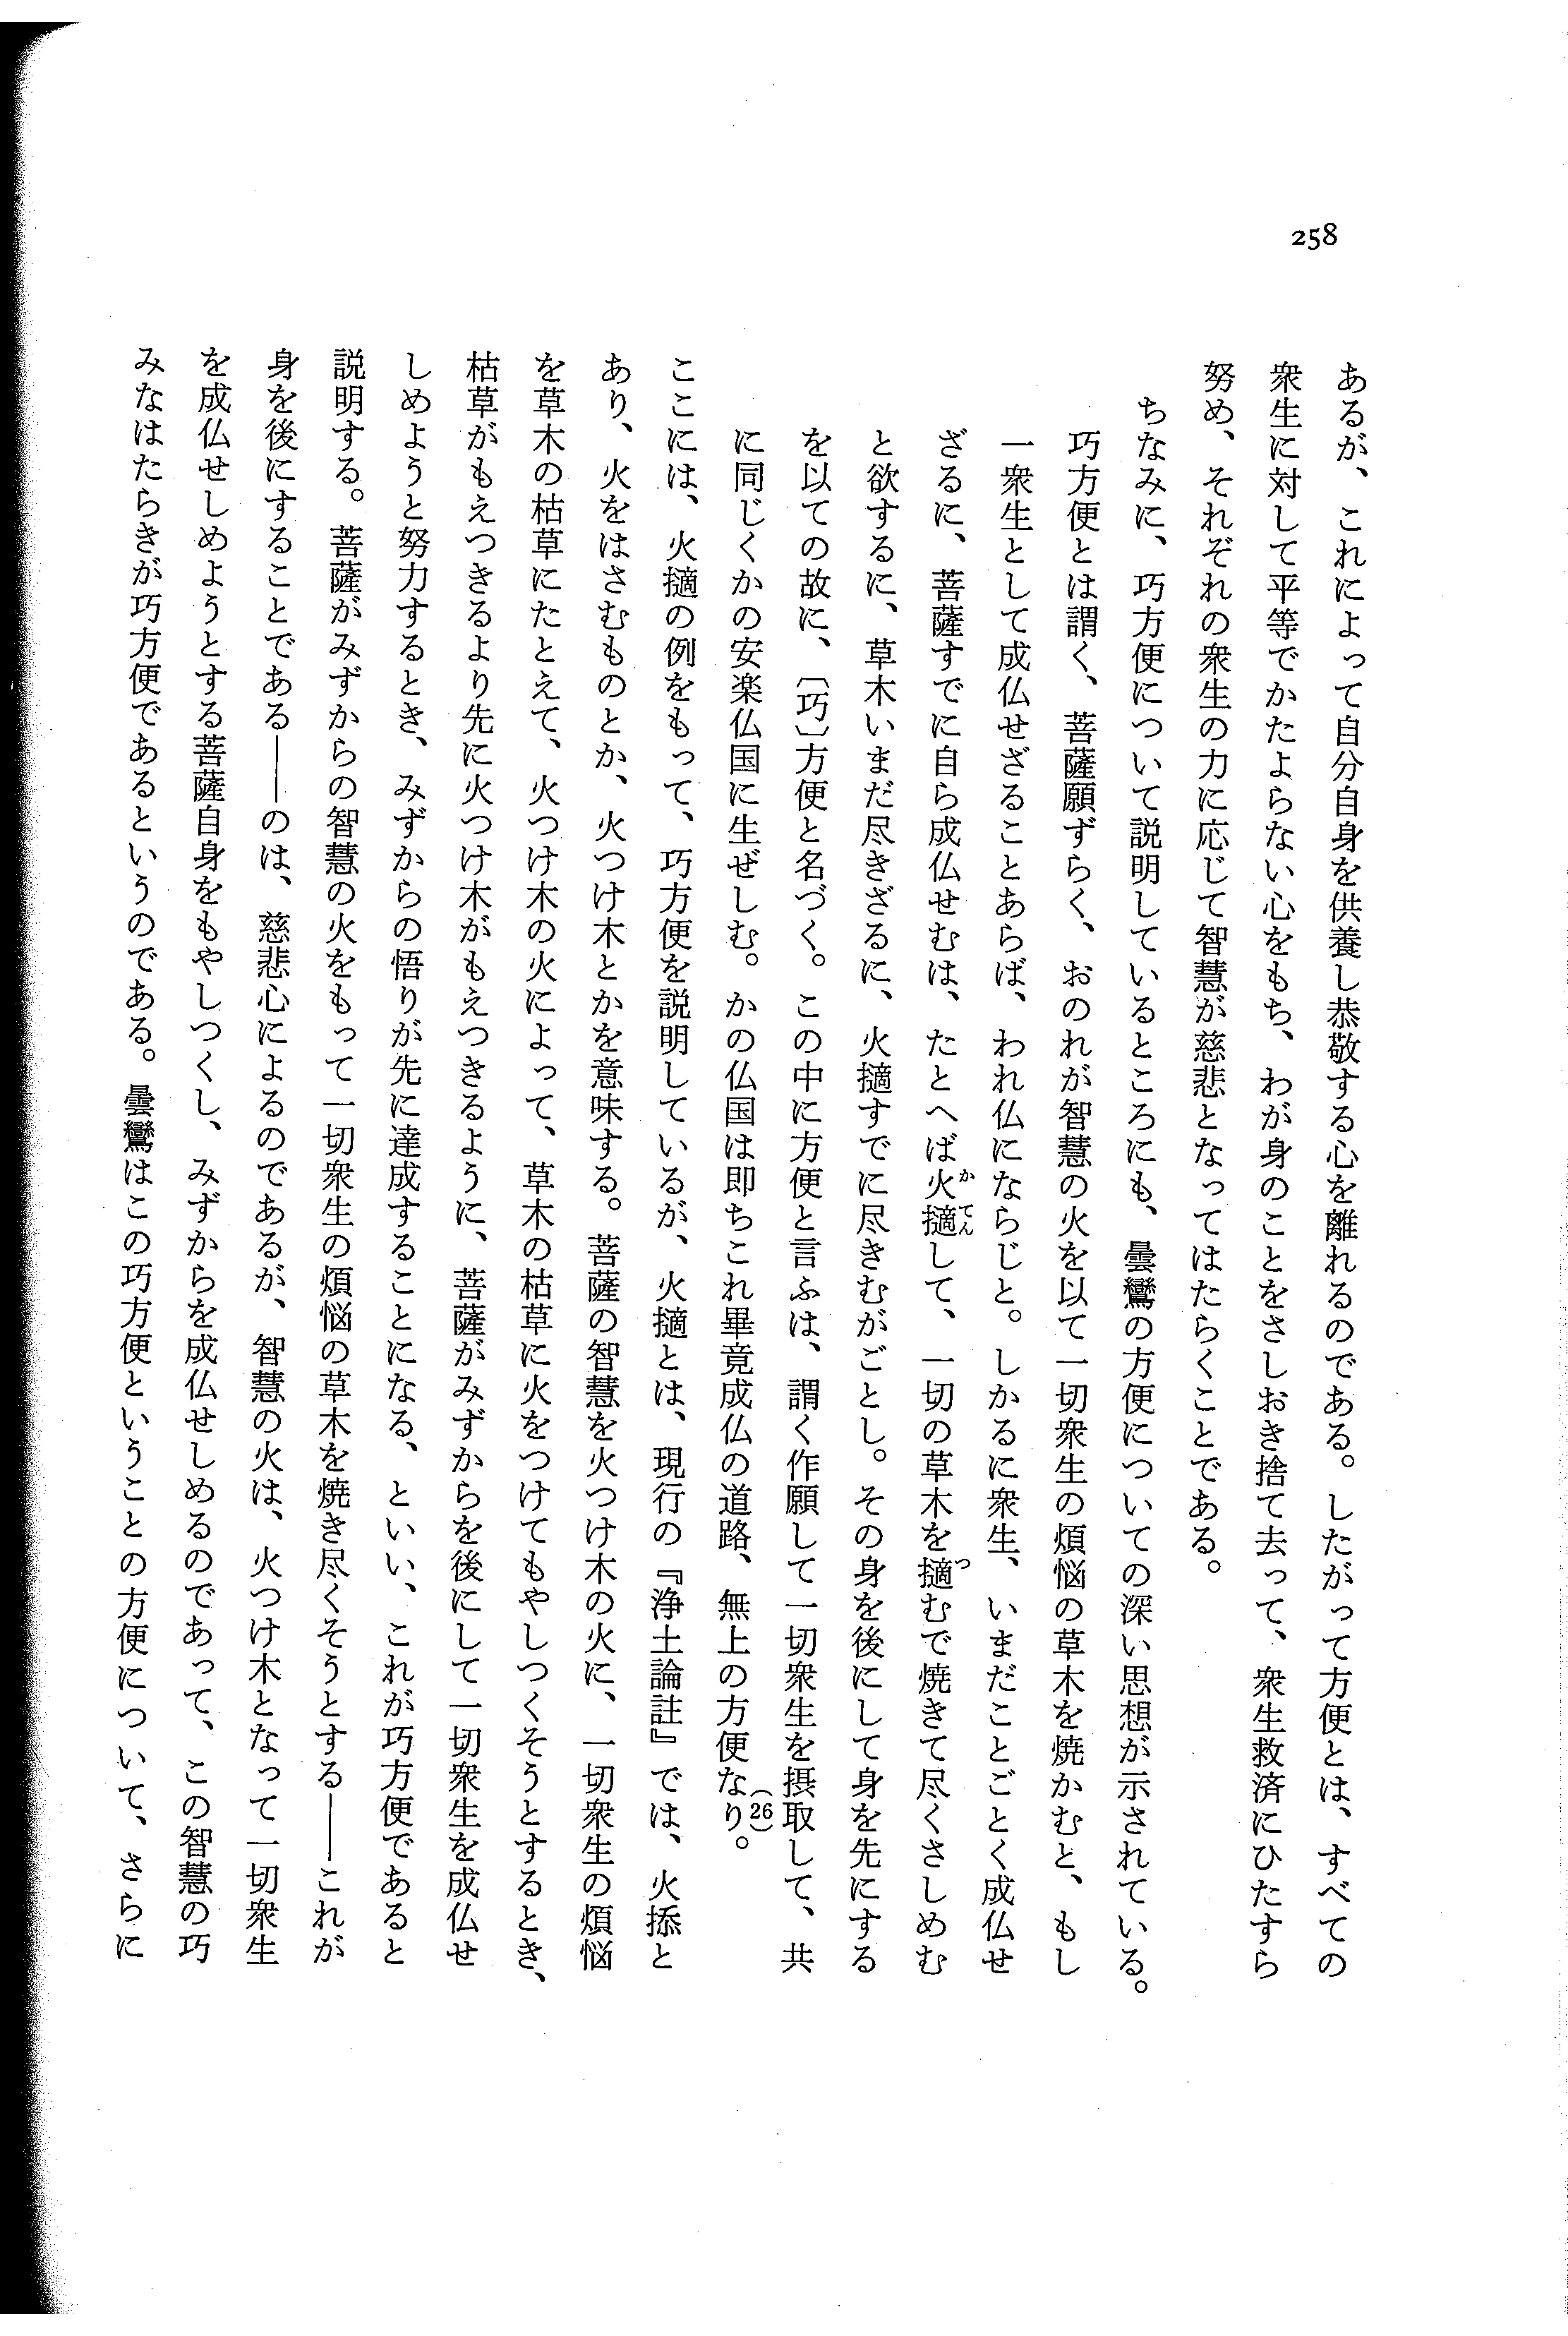 258
あるが、これによって自分自身を供養し恭敬する心を離れるのである。したがって方便とは、すべての
衆生に対して平等でかたよらない心をもち、わが身のことをさしおき捨て去って、衆生救済にひたすら
努め、それぞれの衆生の力に応じて智慧が慈悲となってはたらくことである。
ちなみに、巧方便について説明しているところにも、曇鸞の方便についての深い思想が示されている。
巧方便とは謂く、菩薩願ずらく、おのれが智慧の火を以て一切衆生の煩悩の草木を焼かむと、もし
一衆生として成仏せざることあらば、われ仏にならじと。しかるに衆生、いまだことごとく成仏せ
ざるに、菩薩すでに自ら成仏せむは、たとへば火擿かてんして、一切の草木を擿つむで焼きて尽くさしめむ
と欲するに、草木いまだ尽きざるに、火擿すでに尽きむがごとし。その身を後にして身を先にする
を以ての故に、〔巧〕方便と名づく。この中に方便と言ふは、謂く作願して一切衆生を摂取して、共
に同じくかの安楽仏国に生ぜしむ。かの仏国は即ちこれ畢竟成仏の道路、無上の方便なり。(26)
ここには、火擿の例をもって、巧方便を説明しているが、火擿とは、現行の『浄土論註』では、火𣑥と
あり、火をはさむものとか、火つけ木とかを意味する。菩薩の智慧を火つけ木の火に、一切衆生の煩悩
を草木の枯草にたとえて、火つけ木の火によって、草木の枯草に火をつけてもやしつくそうとするとき、
枯草がもえつきるより先に火つけ木がもえつきるように、菩薩がみずからを後にして一切衆生を成仏せ
しめようと努力するとき、みずからの悟りが先に達成することになる、といい、これが巧方便であると
説明する。菩薩がみずからの智慧の火をもって一切衆生の煩悩の草木を焼き尽くそうとする――これが
身を後にすることである――のは、慈悲心によるのであるが、智慧の火は、火つけ木となって一切衆生
を成仏せしめようとする菩薩自身をもやしつくし、みずからを成仏せしめるのであって、この智慧の巧
みなはたらきが巧方便であるというのである。曇鸞はこの巧方便ということの方便について、さらに